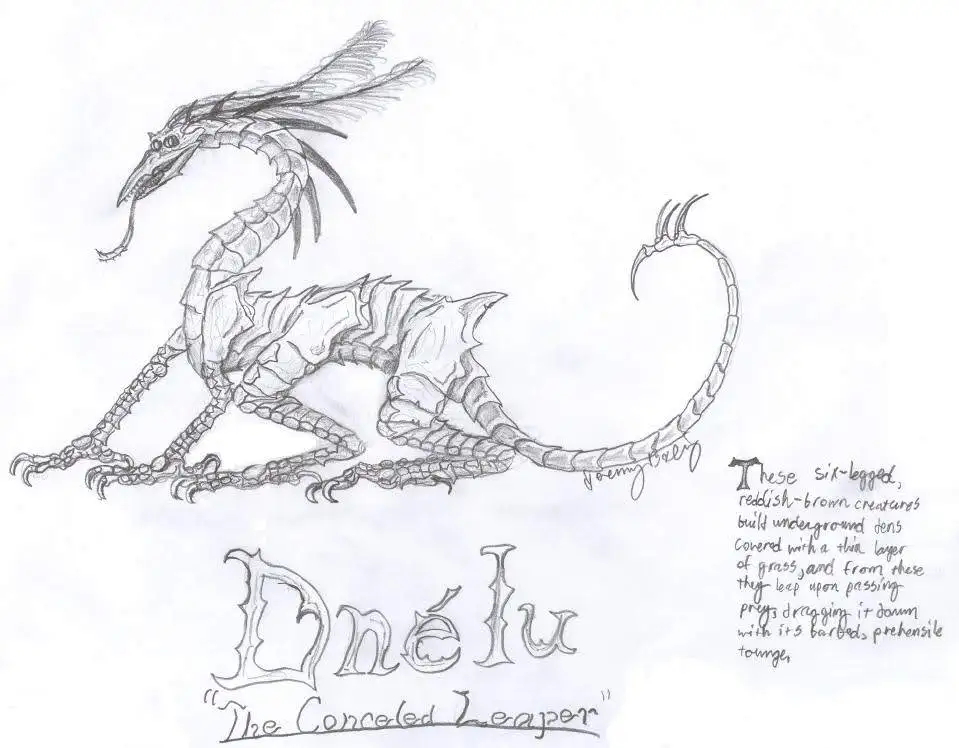 These six-legged,
reddish-brown creatures
build underground dens
covered with a thin layer
of grass, and from these
they leap upon passing
prey, dragging it down
with its barbed, prehensile
tounge.
Dnélu
"The Conceled Leaper"